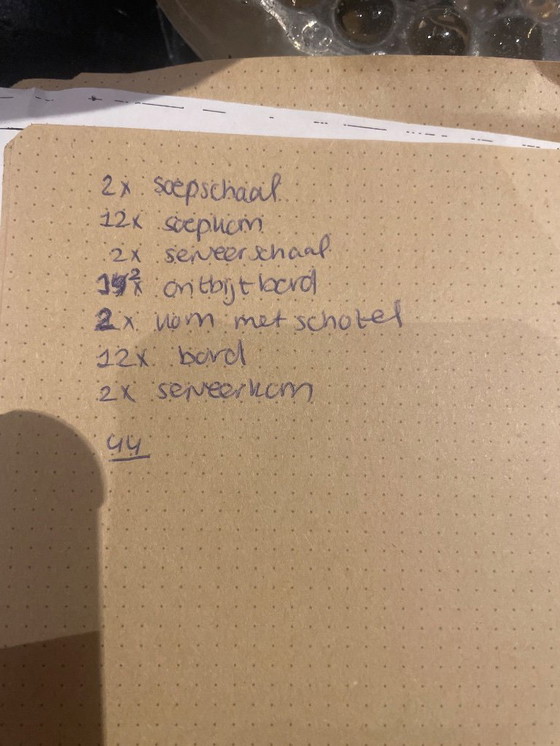 2x soepschaal
12x soepkom
2x serveerschaal
12x ontbijtbord
2x kom met schotel
12x bord
2x serveerkom
44